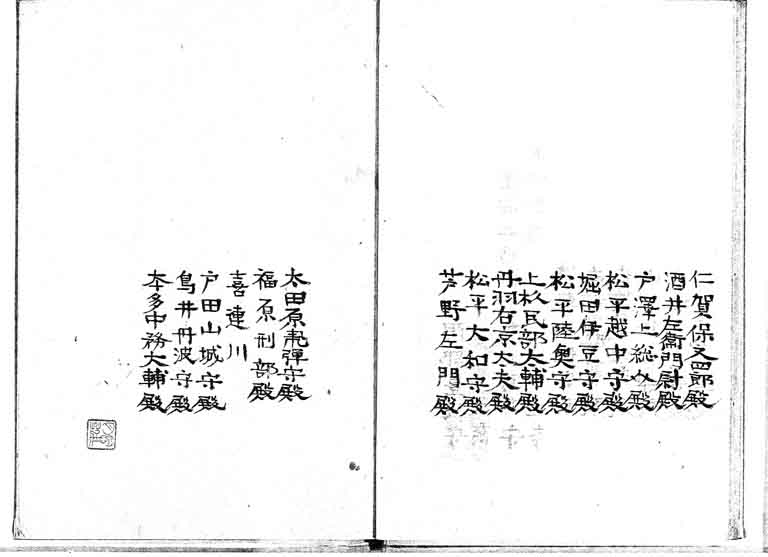 仁賀保又四郎殿
酒井左衛門尉殿
戸澤上総介殿
松平越中守殿
堀田伊豆守殿
松平陸奥守殿
上杉民部大輔殿
丹羽右京大夫殿
松平大和守殿
芦野左門殿
太田原飛彈守殿
福原刑部殿
喜連川
戸田山城守殿
鳥井丹波守殿
本多中務大輔殿